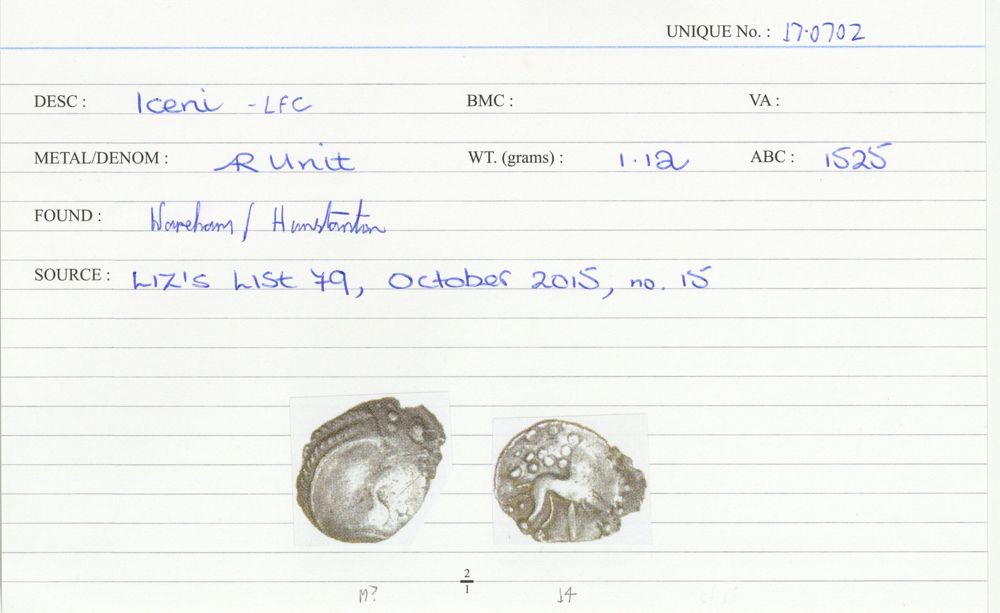 UNIQUE No. : 17.0702
DESC : Iceni - LFC BMC : VA :
METAL/DENOM : AR Unit WT. (grams) : 1.12 ABC : 1525
FOUND : Wareham / Hunstanton
SOURCE : Liz's List 79, October 2015, no. 15
2
1
M? J4